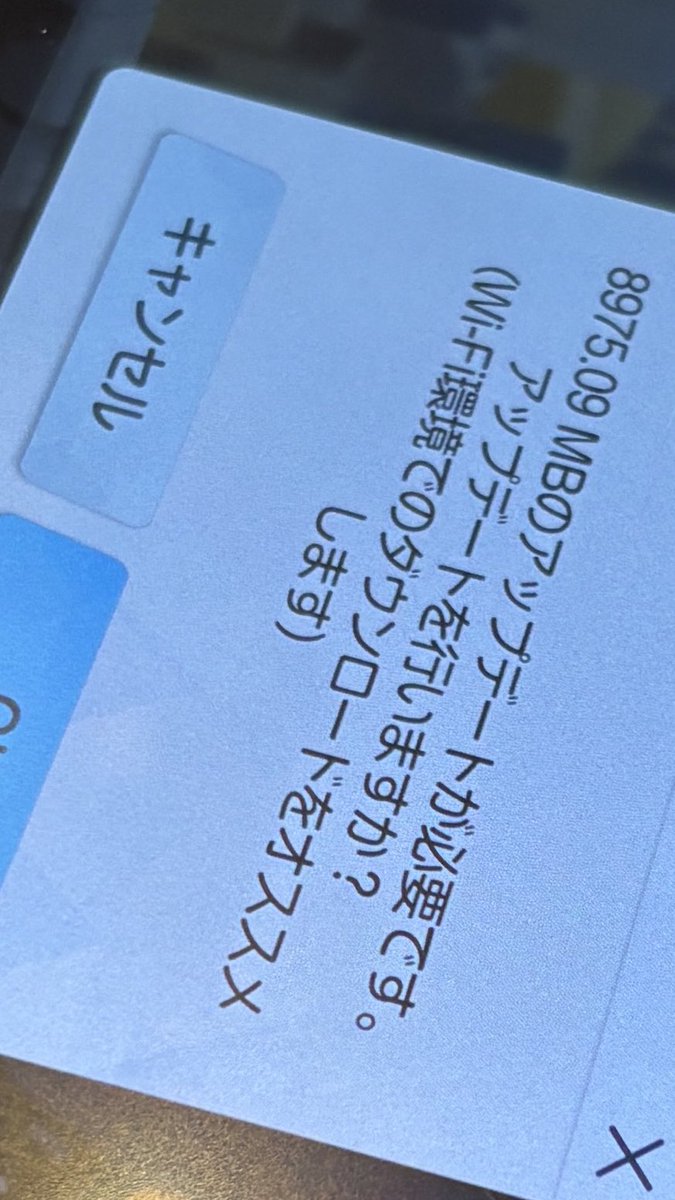 8975.09 MBのアップデートが必要です。
アップデートを行いますか？
(Wi-Fi環境でのダウンロードをオススメ
します)
キャンセル